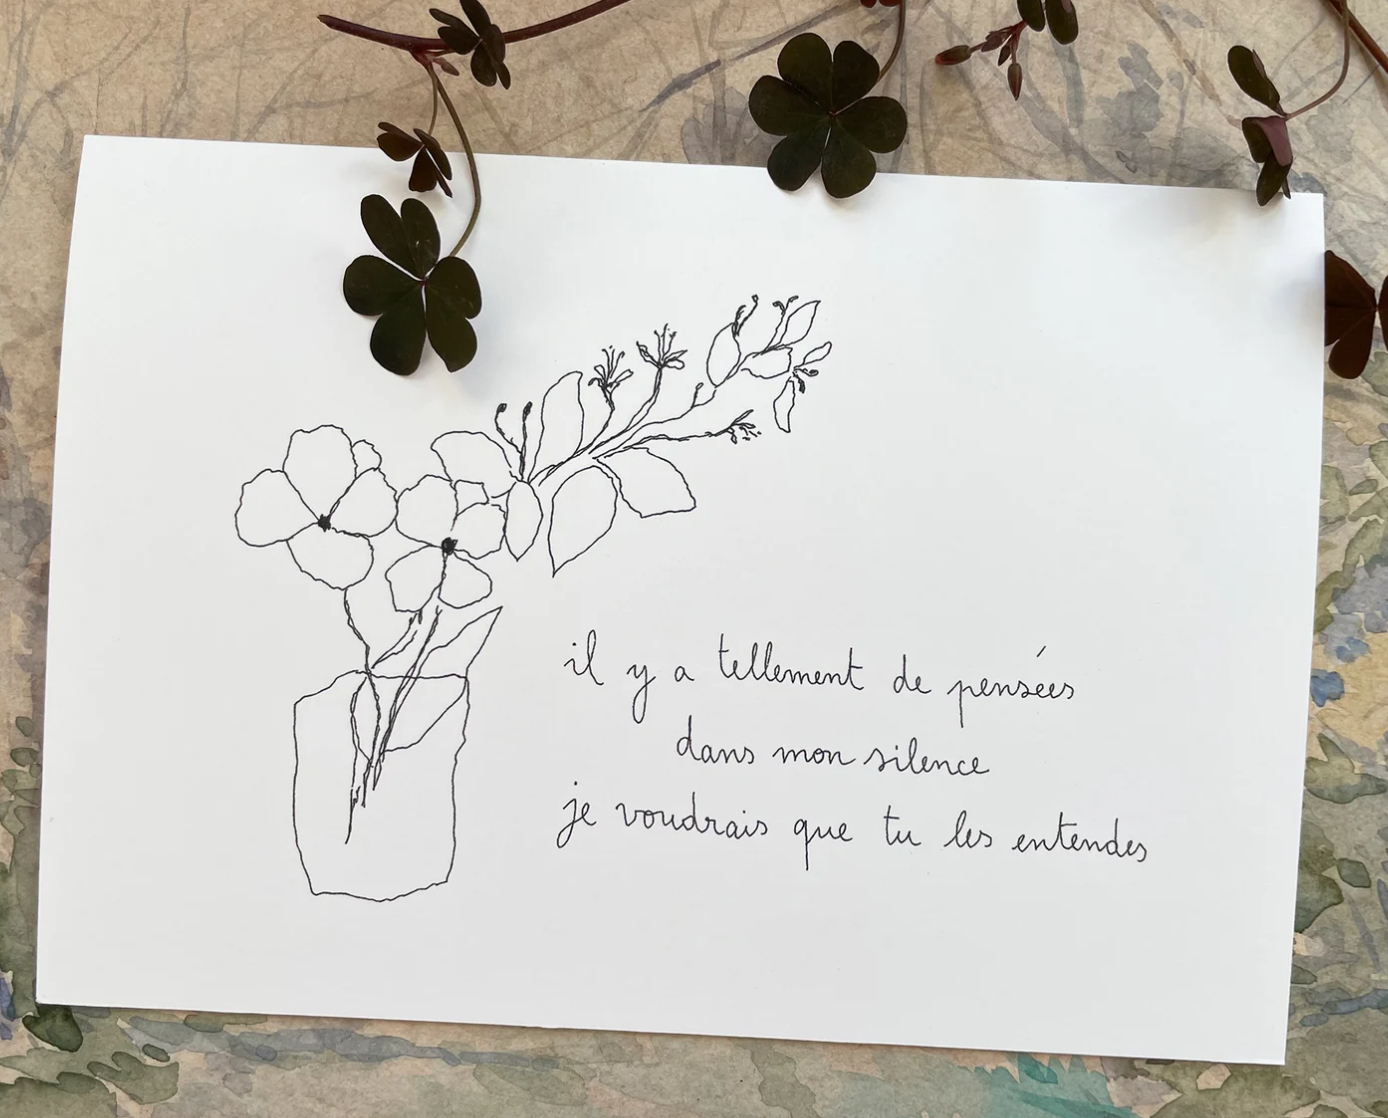 il y a tellement de pensées
dans mon silence
je voudrais que tu les entendes